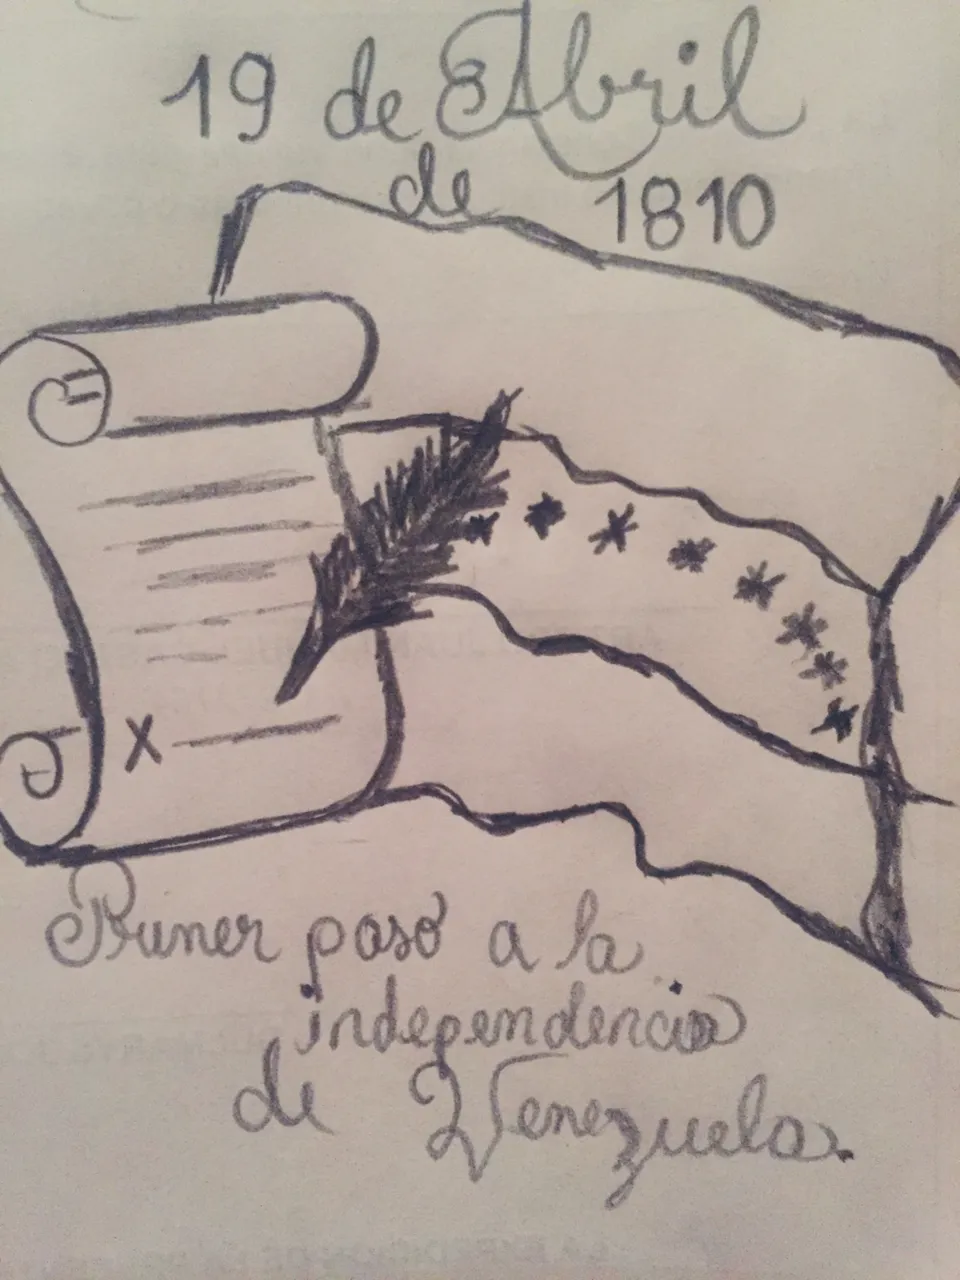 19 de Abril
de 1810
X
Primer paso a la
independencia
de Venezuela.